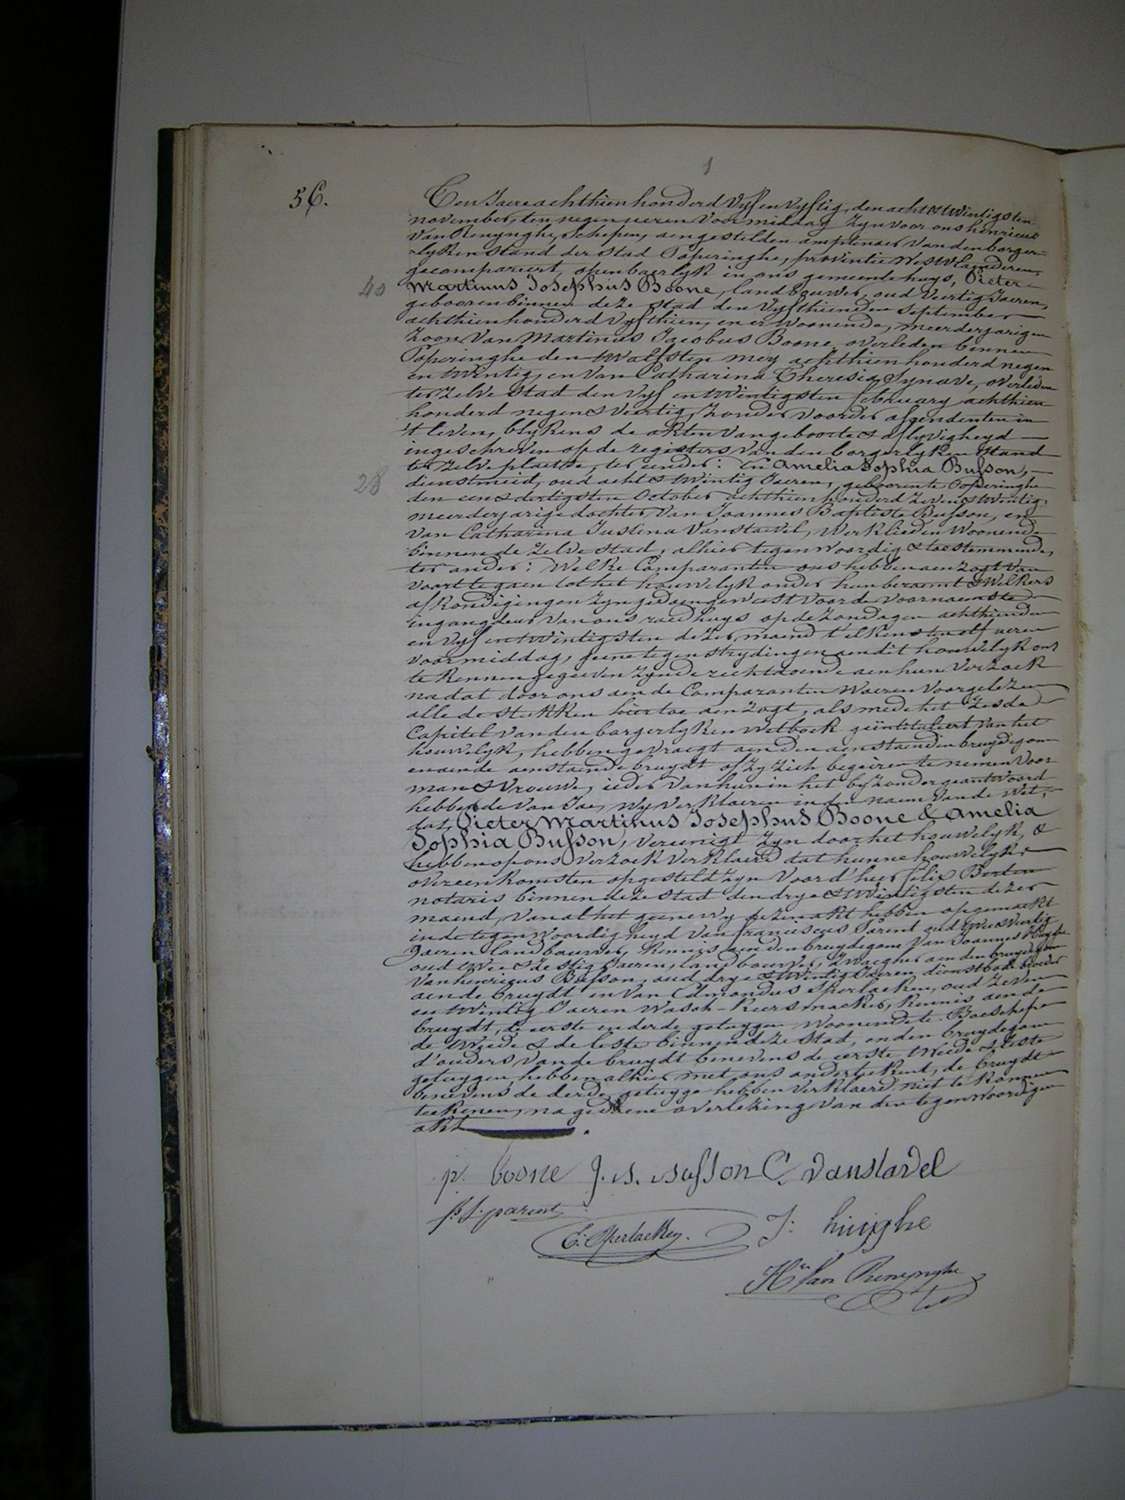 56.
Ten Jaere achthien honderd Vyf en Vyftig, den acht & twintigsten
november, ten negen ueren voormiddag Zyn voor ons henricus
Van Renynghe, Schepen, aengestelden amptenaer van den borger-
-lyken Stand der Stad Poperinghe, provintie Westvlaenderen,
gecompareert, openbaerlyk in ons gemeente huys, Pieter
40 Martinus Josephus Boone, landbouwer, oud Veertig Jaeren,
gebooren binnen deze Stad den Vyfthienden September
achthien honderd Vyfthien, en er Woonende, meerderjarigen
Zoon Van Martinus Jacobus Boone, overleden binnen
Poperinghe den twalfsten mey achthien honderd negen
en twintig, en Van Catharina Theresia Synave, overleden
ter Zelve Stad den Vyf en twintigsten february achthien
honderd negen & Veertig, Zonder voorder afgendenten in
't leven, blykens de akten Van geboorte & aflyvigheyd
ingeschreven op de registers Van den borgerlyken Stand
ter Zelve plaetse, ter eender: En Amelia Sophia Busson,
28 dienstmeid, oud acht & twintig Jaeren, geboren te Poperinghe
den een & dertigsten October achthien honderd Zeven & twintig,
meerderjarige dochter Van Joannes Baptiste Busson, en
Van Catharina Justina Vanstavel, Werklieden Woonende
binnen de Zelve Stad, alhier tegenwoordig & toestemmende,
ter ander: Welke Comparanten ons hebben aenzogt Van
voort te gaen tot het houwelyk onder hun beraemt & Welkers
afkondigingen Zyn gedaen geweest voor de voornaemste
ingangdeur Van ons raedhuys op de Zondagen achthienden
en Vyf en twintigsten dezer maend t'elkens ten elf ueren
voormiddag, geene tegenstrydingen aen dit houwelyk ons
te kennen gegeven Zynde rechtdoende aen hun Verzoek
na dat door ons aen de Comparanten Waeren Voorgelezen
alle de stukken hier toe aenzogt, als mede het Zesde
Capitel Van den borgerlyken Wetboek geïntituleert Van het
houwelyk, hebben gevraegt aen den aenstaenden bruydegom
en aen de aenstaende bruydt of Zy Zich begeiren te nemen Voor
man & Vrouwe, ieder Van hun in het byzonder geantwoord
hebbende Van Jae, Wy Verklaeren in den naem Van de Wet,
dat, Pieter Martinus Josephus Boone & Amelia
Sophia Busson, Vereenigt Zyn door het houwelyk, &
hebben op ons Verzoek Verklaerd dat hunne houwelyks
overeenkomsten opgesteld Zyn Voor d'heer felix Berten
notaris binnen deze Stad den drye & twintigsten dezer
maend, Van al het geene wy gezemakt hebben opgemaekt
in de tegenwoordigheyd Van franciscus Parent oud twee & Veertig
Jaeren landbouwer, kennis aen den bruydegom Van Joannes Huyghe
oud twee & Zestig Jaeren, landbouwer, Zwaegher aen den bruydegom
Van henricus Busson, oud drye & twintig Jaeren, dienstbode broeder
aen de bruydt en Van Edmondus Sperlaeken, oud Zeven
en twintig Jaeren Wasch-keersmaeker, kennis aen de
bruydt, de eerste en derde getuygen Woonende te Boeschepe
de tweede & de leste binnen deze Stad, en den bruydegom
d'ouders Van de bruydt benevens de eerste tweede & leste
getuygen hebben alhier met ons onderteekend, de bruydt
benevens de derde getuyge hebben Verklaerd niet te konnen
teekenen, na gedaene overlezing Van den tegenwoordigen
akt.
p. boone J. B. Busson C. vanstavel
f. J. parent
E. Sperlaeken. J: huijghe
H. Van Renynghe